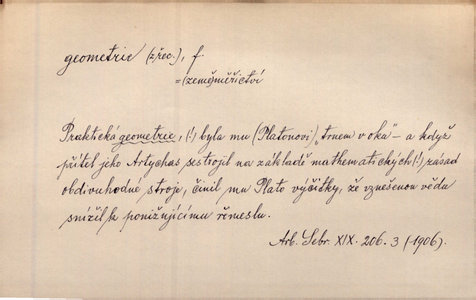 geometrie (z řec.), f.
=(země)měřictví
Praktická geometrie, (!) byla mu (Platonovi) „trnem v oka" – a když
přítel jeho Artychas sestrojil na základě mathematických (!) zásad
obdivuhodné stroje, činil mu Plato výčitky, že vznešenou vědu
snížil k ponižujícímu řemeslu.
Arb. Sebr. XIX. 206. 3 (-1906).